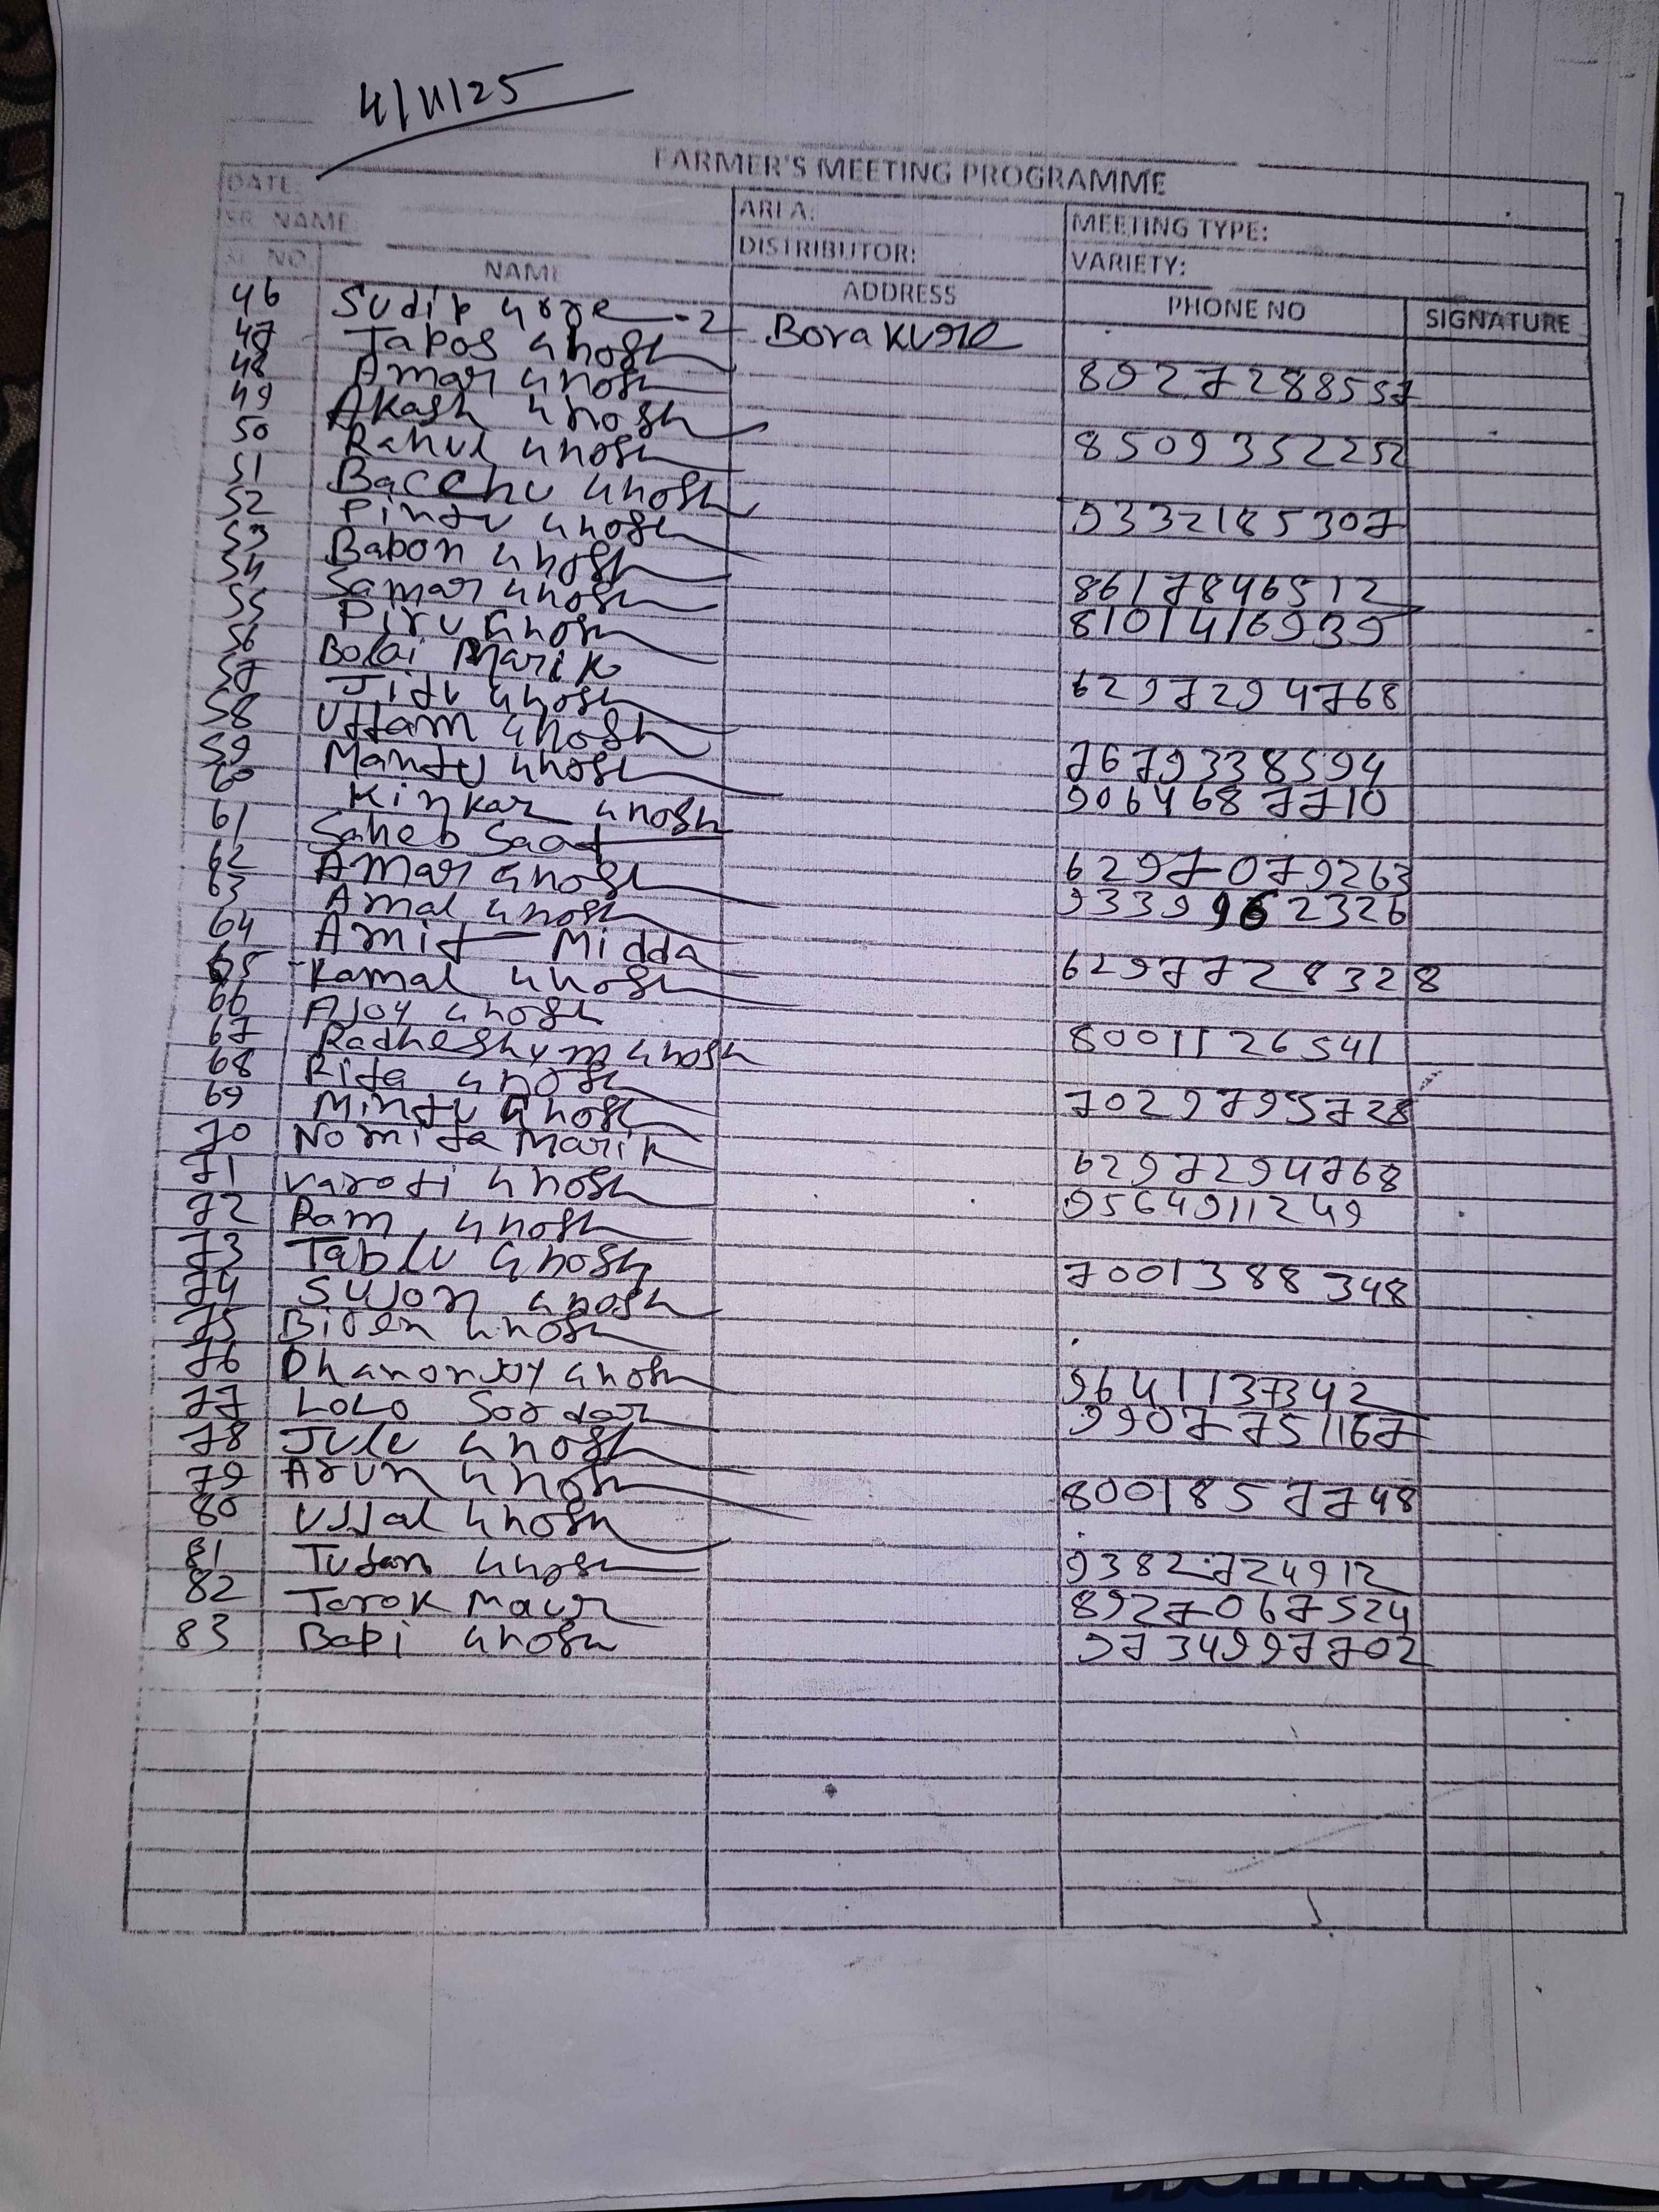 4/11/25
FARMER'S MEETING PROGRAMME
DATE: AREA: MEETING TYPE:
SR. NAME: DISTRIBUTOR: VARIETY:
SL NO NAME ADDRESS PHONE NO SIGNATURE
46 Sudip -2
47 Tapos Ghosh
48 Amar Ghosh 8927288557
49 Akash Ghosh
50 Rahul Ghosh 8509352252
51 Bacchu Ghosh
52 Pintu Ghosh 9332185307
53 Babon Ghosh
54 Samar Ghosh 8617846512
55 Piru Ghosh 8101416939
56 Bolai Marik
57 Jitu Ghosh 6297294768
58 Uttam Ghosh
59 Mantu Ghosh 7679338594
60 Kinkar Ghosh 9064687710
61 Saheb
62 Amar Ghosh 6297079263
63 Amal Ghosh 9339962326
64 Amit Midda
65 Kamal Ghosh 6297728328
66 Ajoy Ghosh
67 Radheshym Ghosh 8001126541
68 Rita Ghosh
69 Mintu Ghosh 7029795728
70 Nomita Marik
71 Varoti Ghosh 6297294768
72 Ram Ghosh 9564911249
73 Tablu Ghosh
74 Sujon Ghosh 7001388348
75 Biren Ghosh
76 Dhanonjoy Ghosh 9641137342
77 LOLO Sordar 9907751167
78 Julu Ghosh
79 Arun Ghosh 8001857748
80 Ujjal Ghosh
81 Tutan Ghosh 9382724912
82 Tarok 8927067524
83 Bapi Ghosh 9734997702